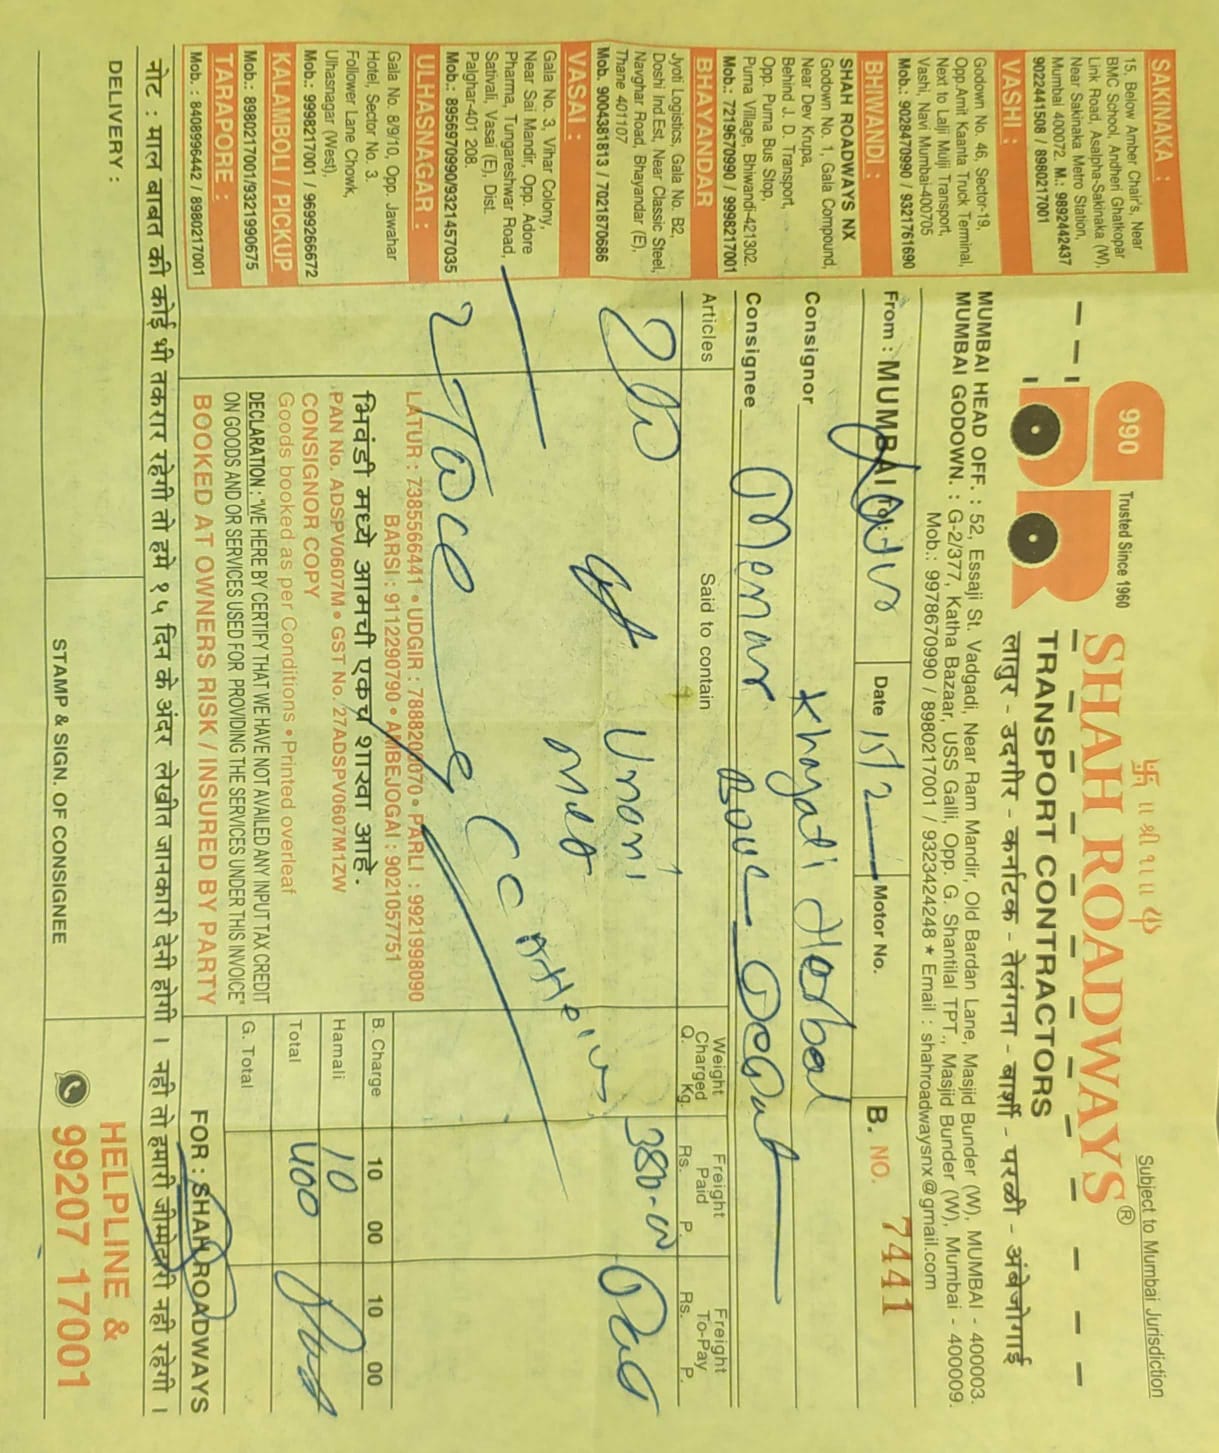 Subject to Mumbai Jurisdiction
990
Trusted Since 1960
॥ श्री १॥ ॥
SHAH ROADWAYS®
TRANSPORT CONTRACTORS
लातुर - उदगीर - कर्नाटक - तेलंगना - बार्शी - परळी - अंबेजोगाई
MUMBAI HEAD OFF. : 52, Essaji St. Vadgadi, Near Ram Mandir, Old Bardan Lane, Masjid Bunder (W), MUMBAI - 400003.
MUMBAI GODOWN. : G-2/377, Katha Bazaar, USS Galli, Opp. G. Shantilal TPT., Masjid Bunder (W), Mumbai - 400009.
Mob.: 9978670990 / 8980217001 / 9323424248 * Email : shahroadwaysnx@gmail.com
SAKINAKA :
15, Below Amber Chair's, Near
BMC School, Andheri Ghatkopar
Link Road, Asalpha-Sakinaka (W),
Near Sakinaka Metro Station,
Mumbai 400072. M.: 9892442437
9022441508 / 8980217001
VASHI :
Godown No. 46, Sector-19,
Opp.Amit Kaanta Truck Terminal,
Next to Lalji Mulji Transport,
Vashi, Navi Mumbai-400705
Mob.: 9028470990 / 9321761690
BHIWANDI :
SHAH ROADWAYS NX
Godown No. 1, Gala Compound,
Near Dev Krupa,
Behind J. D. Transport,
Opp. Purna Bus Stop,
Purna Village, Bhiwandi-421302.
Mob.: 7219670990 / 9998217001
BHAYANDAR
Jyoti Logistics, Gala No. B2,
Doshi Ind.Est, Near Classic Steel,
Navghar Road, Bhayandar (E),
Thane 401107
Mob. 9004381813 / 7021870686
VASAI :
Gala No. 3, Vihar Colony,
Near Sai Mandir, Opp. Adore
Pharma, Tungareshwar Road,
Sativali, Vasai (E), Dist.
Palghar-401 208.
Mob.: 8956970990/9321457035
ULHASNAGAR :
Gala No. 8/9/10, Opp. Jawahar
Hotel, Sector No. 3.
Follower Lane Chowk,
Ulhasnagar (West),
Mob.: 9998217001 / 9699266672
KALAMBOLI / PICKUP
Mob.: 8980217001/9321990675
TARAPORE :
Mob. : 8408996442 / 8980217001
From : MUMBAI To : Latur Date Motor No. B. NO. 7441
Consignor Khayati Herbal
Consignee
Articles Said to contain Weight Charged Q. Kg. Freight Paid Rs. P. Freight To-Pay Rs. P.
Unani 380-00 Paid
LATUR : 7385566441 • UDGIR : 7888200070 • PARLI : 9921998090
BARSI : 9112290790 • AMBEJOGAI : 9021057751
भिवंडी मध्ये आमची एकच शाखा आहे.
PAN No. ADSPV0607M • GST No. 27ADSPV0607M1ZW
CONSIGNOR COPY
Goods booked as per Conditions • Printed overleaf
DECLARATION : "WE HERE BY CERTIFY THAT WE HAVE NOT AVAILED ANY INPUT TAX CREDIT
ON GOODS AND OR SERVICES USED FOR PROVIDING THE SERVICES UNDER THIS INVOICE"
BOOKED AT OWNERS RISK / INSURED BY PARTY
B. Charge 10 00 10 00
Hamali 10
Total 400 Paid
G. Total
FOR : SHAH ROADWAYS
नोट : माल बाबत की कोई भी तकरार रहेगी तो हमे १५ दिन के अंदर लेखीत जानकारी देनी होगी । नही तो हमारी जीम्मेदारी नही रहेगी ।
DELIVERY :
STAMP & SIGN. OF CONSIGNEE
HELPLINE &
99207 17001